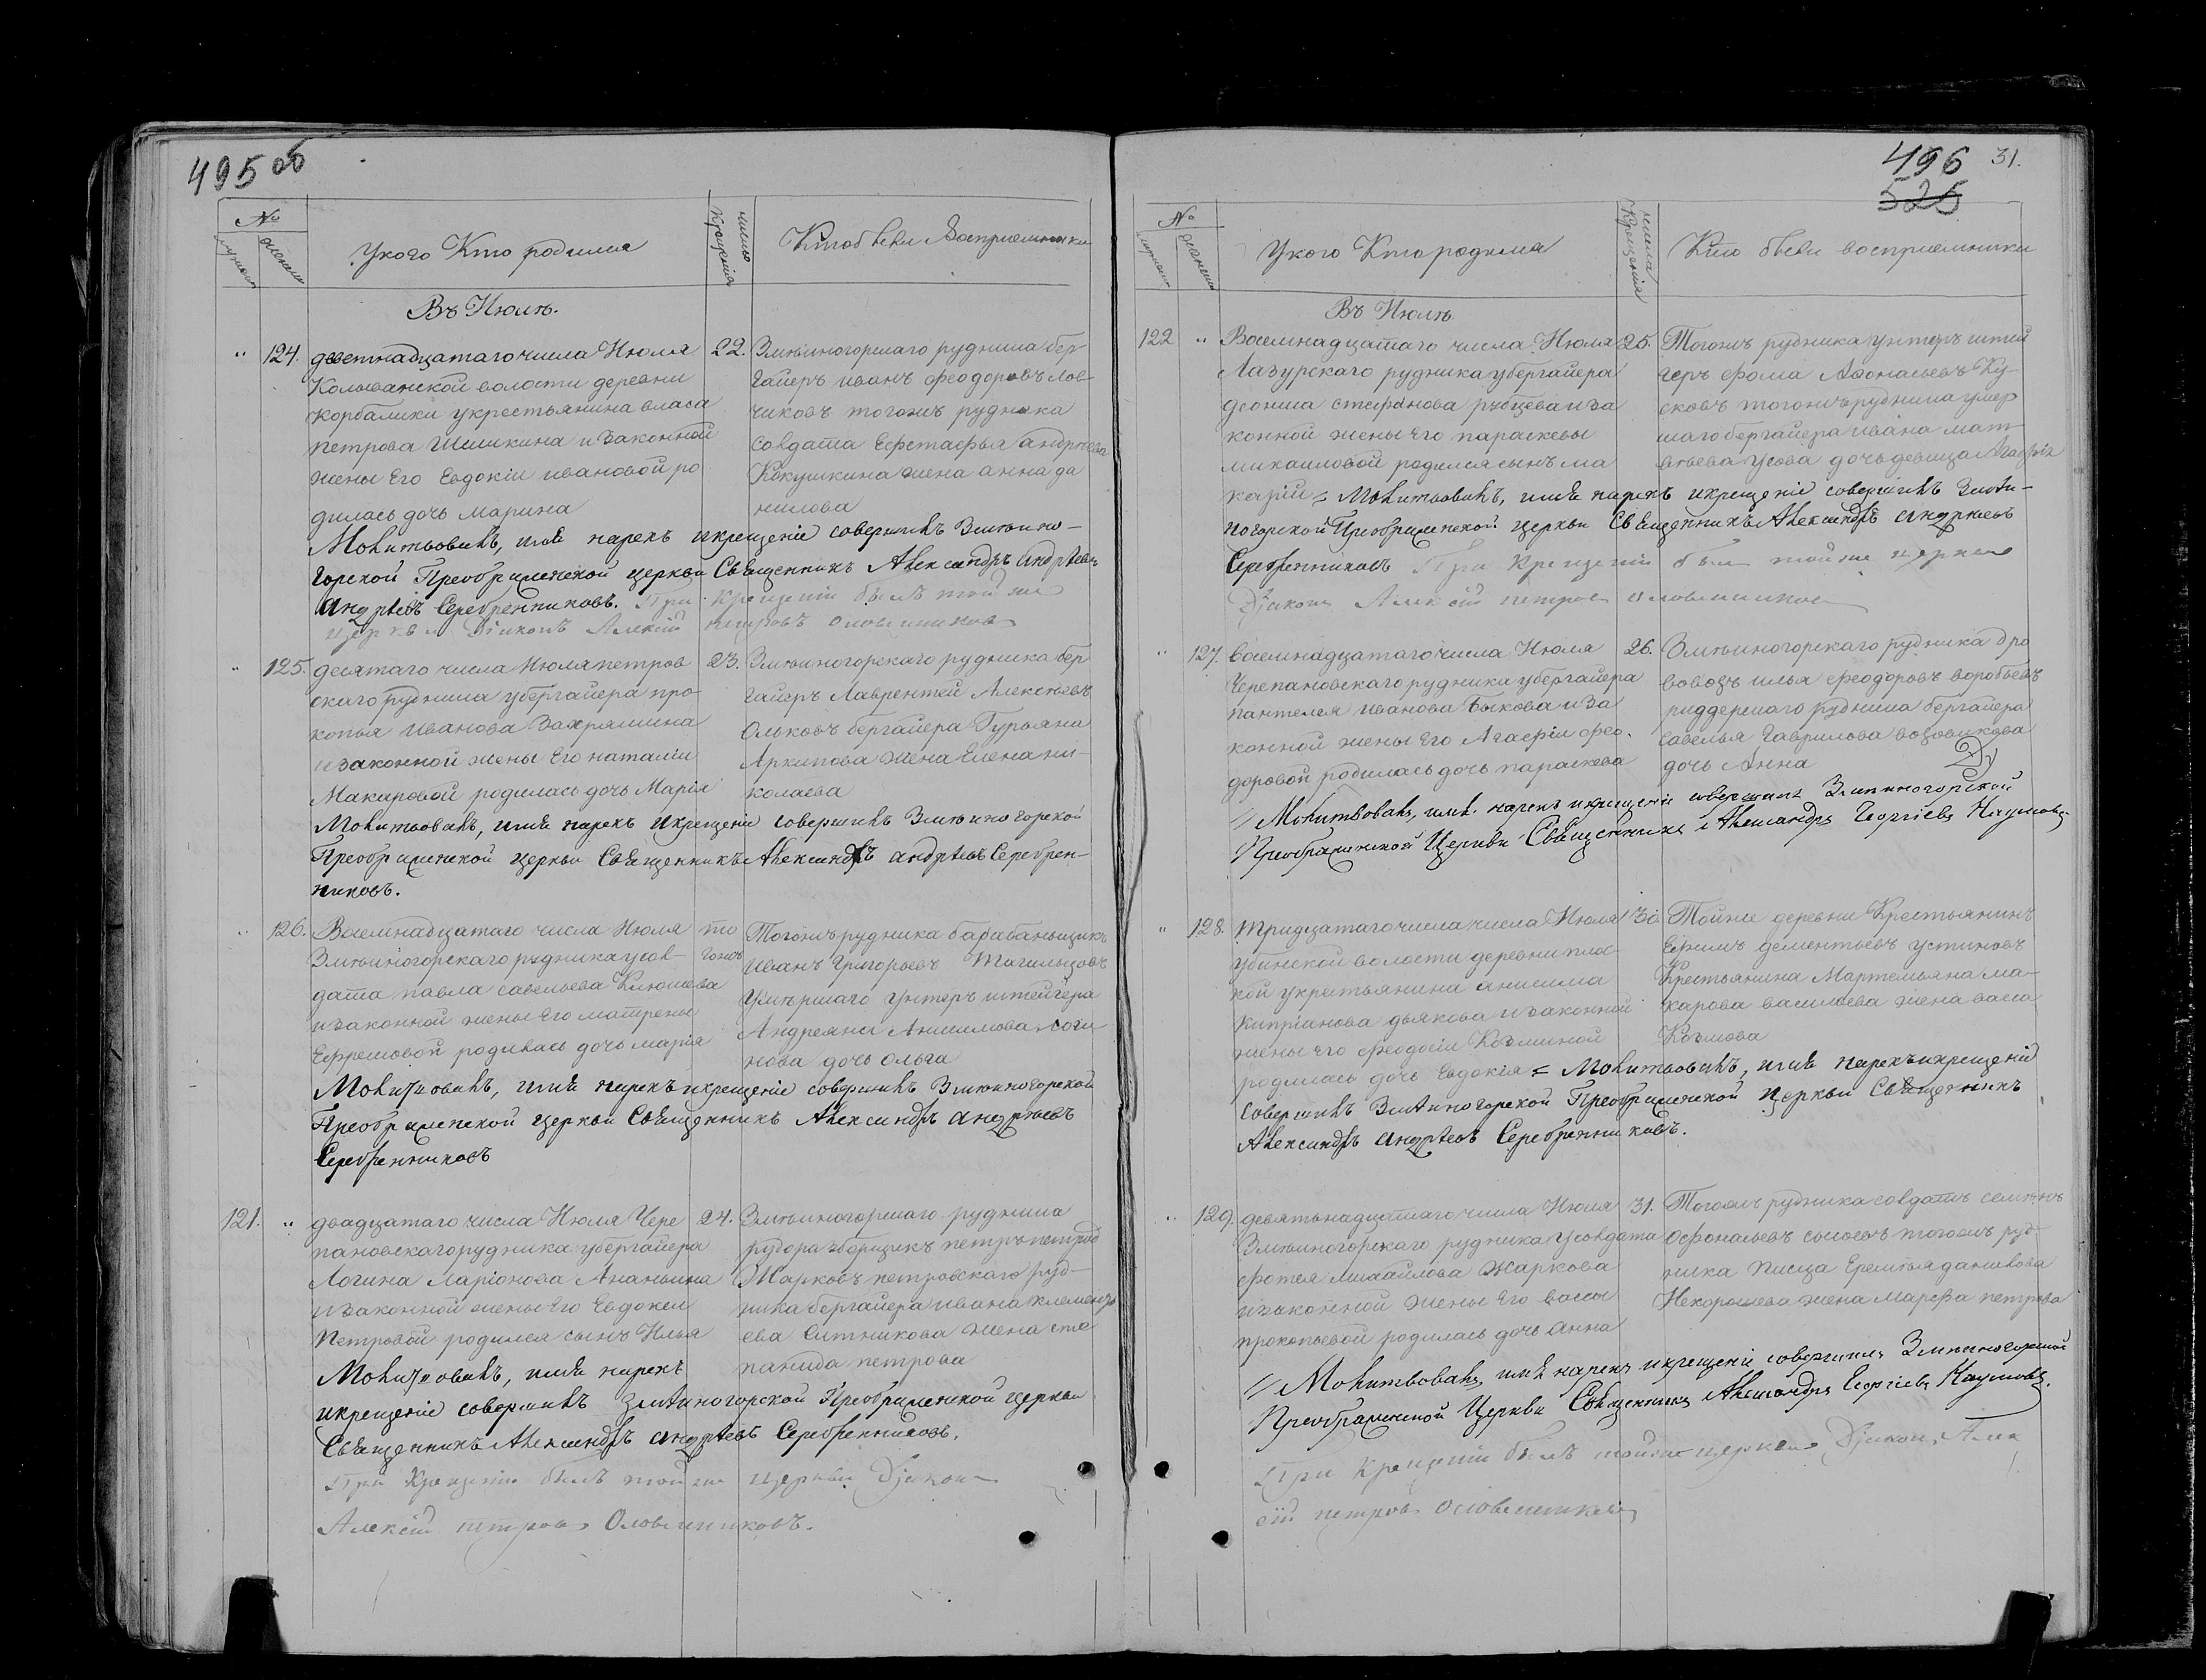 495 об
№
мужска
женска
Укого Кто родился
число Крещенія
Ктоб были Восприемники
Въ Июлѣ.
" 124. двенадцатаго числа Июля 22.
Колыванской волости деревни
Корбалихи укрестьянина власа
петрова Шишкина и законной
жены Его Евдокіи ивановой ро
дилась дочь Марина
Змѣиногорскаго рудника бер
гайеръ иванъ феодоровъ Лов
чиковъ тогожъ рудника
Солдата Ефстафья андрѣева
Кокушкина жена анна да
нилова
Молитвовалъ, имя нарекъ икрещеніе совершилъ Змѣино-
горской Преображенской церкви Священникъ Александръ Андрѣевъ
Андрѣевъ Серебренниковъ. При Крещеніи былъ той же
церкви Діаконъ Алексій петровъ Оловянишниковъ
" 125. десятаго числа Июля петров 23.
скаго рудника убергайера про-
копья Иванова Захряпина
изаконной жены Его наталіи
Макаровой родилась дочь Марія
Змѣиногорскаго рудника бер
гайеръ Лаврентей Алексѣевъ
Ольковъ бергайера Гурьяна
Архипова жена Елена ни-
колаева
Молитвовалъ, имя нарекъ икрещеніе совершилъ Змѣиногорской
Преображенской церкви Священникъ Александръ андрѣевъ Серебрен-
никовъ.
" 126. Восемнадцатаго числа Июля то
Змѣиногорскаго рудника усол- гожъ
дата павла савельева Клюшева
изаконной жены Его матрены
Ефремовой родилась дочь марія
Тогожъ рудника барабаньщикъ
иванъ Григорьевъ Тагильцовъ
Умѣршаго Унтеръ штейгера
Андреяна Анисимова Логи
нова дочь ольга
Молитвовалъ, имя нарекъ икрещеніе совершилъ Змѣиногорской
Преображенской церкви Священникъ Александръ андрѣевъ
Серебренниковъ
121. " двадцатаго числа Июля Чере 24.
пановскаго рудника убергайера
Логина Ларіонова Ананьина
изаконной жены Его Евдокеи
Петровой родился сынъ Илья
Змѣиногорскаго рудника
рудоразборщикъ петръ петров
Жарковъ петровскаго руд-
ника бергайера ивана клементь
ева Ситникова жена сте
панида петрова
Молитвовалъ, имя нарекъ
икрещеніе совершилъ Змѣиногорской Преображенской церкви
Священникъ Александръ андрѣевъ Серебренниковъ.
При Крещеніи былъ той же церкви Діаконъ
Алексій петровъ Оловянишниковъ.
496 31.
525
№
мужска
женска
Укого Кто родился
числа Крещенія
Кто были восприемники
Въ Июлѣ
122 " Восемнадцатаго числа Июля 25.
Лазурскаго рудника убергайера
деониса стефанова рубцева иза
конной жены Его параскевы
михаиловой родился сынъ ма
карій = Молитвовалъ, имя нарекъ икрещеніе совершилъ Змѣи-
Тогожъ рудника унтеръ штей
геръ фома Афонасьевъ Ку-
сковъ тогожъ рудника умер
шаго бергайера ивана мат-
вѣева Усова дочь девица Агафья
ногорской Преображенской церкви Священникъ Александръ андрѣевъ
Серебренниковъ При Крещеніи былъ той же церкви
Діаконъ Алексій петровъ Оловянишниковъ
" 127. Восемнадцатаго числа Июля 26.
Черепановскаго рудника убергайера
пантелея иванова Быкова иза
конной жены Его Агафіи фео-
доровой родилась дочь параскева
Змѣиногорскаго рудника дро
вовозъ илья феодоровъ воробьевъ
риддерскаго рудника бергайера
савелья Гаврилова возовикова
дочь Анна
// Молитвовалъ, имя нарекъ икрещеніе совершилъ Змѣиногорской
Преображенской Церкви Священникъ Александръ Георгіевъ Наумовъ.
" 128. тридцатаго числа числа Июля 30.
убинской волости деревни пло
кой укрестьянина анисима
Кипріанова дьякова изаконной
жены его феодосіи Козминой
родилась дочь Евдокія = Молитвовалъ, имя нарекъ икрещеніе
Тойже деревни Крестьянинъ
Ефимъ дементьевъ устиновъ
Крестьянина Мартемьяна ма-
карова василева жена васса
Козмова
совершилъ Змѣиногорской Преображенской церкви Священникъ
Александръ андрѣевъ Серебренниковъ.
" 129. девятьнадцатаго числа Июля 31.
Змѣиногорскаго рудника усолдата
фотея михайлова Жаркова
изаконной жены Его вассы
прокопьевой родилась дочь анна
Тогожъ рудника солдатъ семѣнъ
Офонасьевъ тогожъ руд-
ника писца Еремѣя данилова
Некорошева жена марфа петрова
// Молитвовалъ, имя нарекъ икрещеніе совершилъ Змѣиногорской
Преображенской Церкви Священникъ Александръ Георгіевъ Наумовъ.
При Крещеніи былъ тойже церкви Діаконъ Алек
сій петровъ Оловянишниковъ